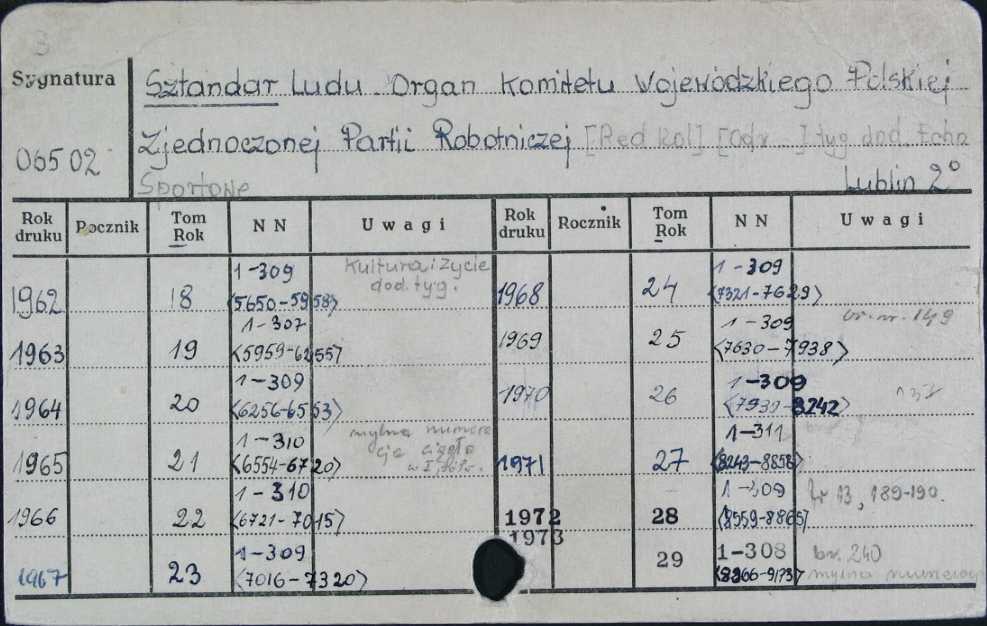 Sygnatura
06502
Sztandar Ludu. Organ Komitetu Wojewódzkiego Polskiej
Zjednoczonej Partii Robotniczej [Red kol] [Odr...] tyg dod. Echo
Sportowe
Lublin 2°
Rok druku Rocznik Tom Rok NN Uwagi Rok druku Rocznik Tom Rok NN Uwagi
1962 18 1-309 <5650-5958> Kultura i życie dod. tyg.
1963 19 1-307 <5959-6255>
1964 20 1-309 <6256-6553>
1965 21 1-310 <6554-6720> mylna numera cje ciągła
1966 22 1-310 <6721-7015>
1967 23 1-309 <7016-7320>
1968 24 1-309 <7321-7629>
1969 25 1-309 <7630-7938> br. nr. 149
1970 26 1-309 <7939-8242>
1971 27 1-311 <8243-8558>
1972 28 1-309 <8559-8865> 13, 189-190.
1973 29 1-308 <8866-9173> br. 240 mylna numeracj